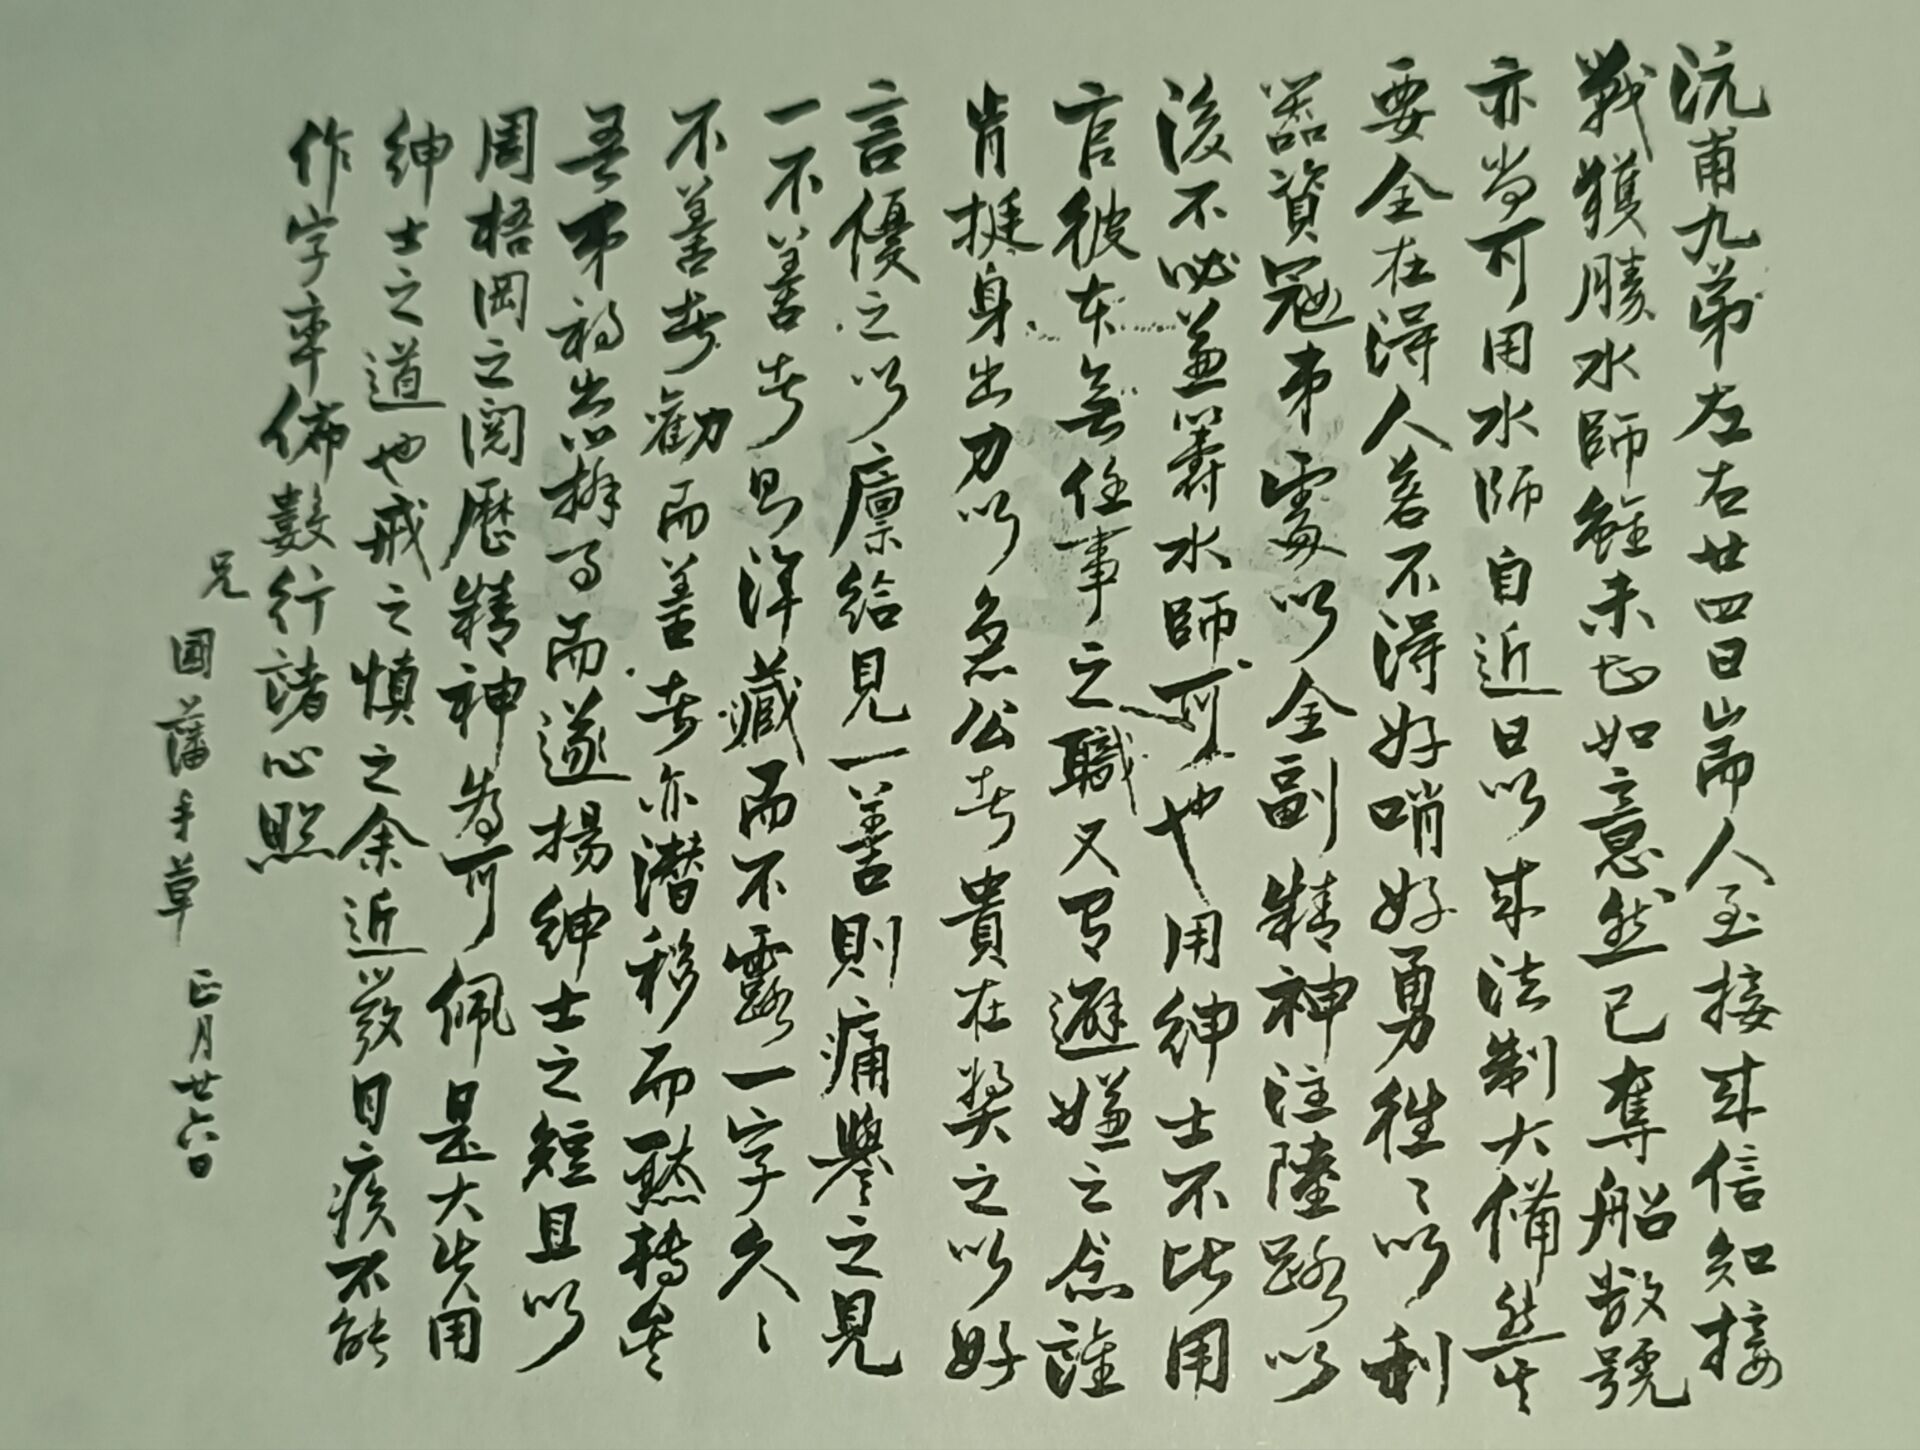 沅甫九弟左右廿四日崙人至接來信知接
戰獲勝水師雖未甚如意然已奪船數號
亦尚可用水師自近日以來法制大備然其
要全在得人若不得好哨好勇往〻以利
器資寇弟處以全副精神注陸路以
後不必兼籌水師可也用紳士不比用
官彼本無任事之職又有避嫌之念誰
肯挺身出力以急公者貴在獎之以好
言優之以廩給見一善則痛譽之見
一不善者則渾藏而不露一字久〻
不善者勸而善者亦潛移而默轉矣
吾弟初出辦事而遂揚紳士之短且以
周梧岡之閱歷精神為可佩是大失用
紳士之道也戒之慎之余近發目疾不能
作字率佈數行諸心照
兄
國藩手草 正月廿六日